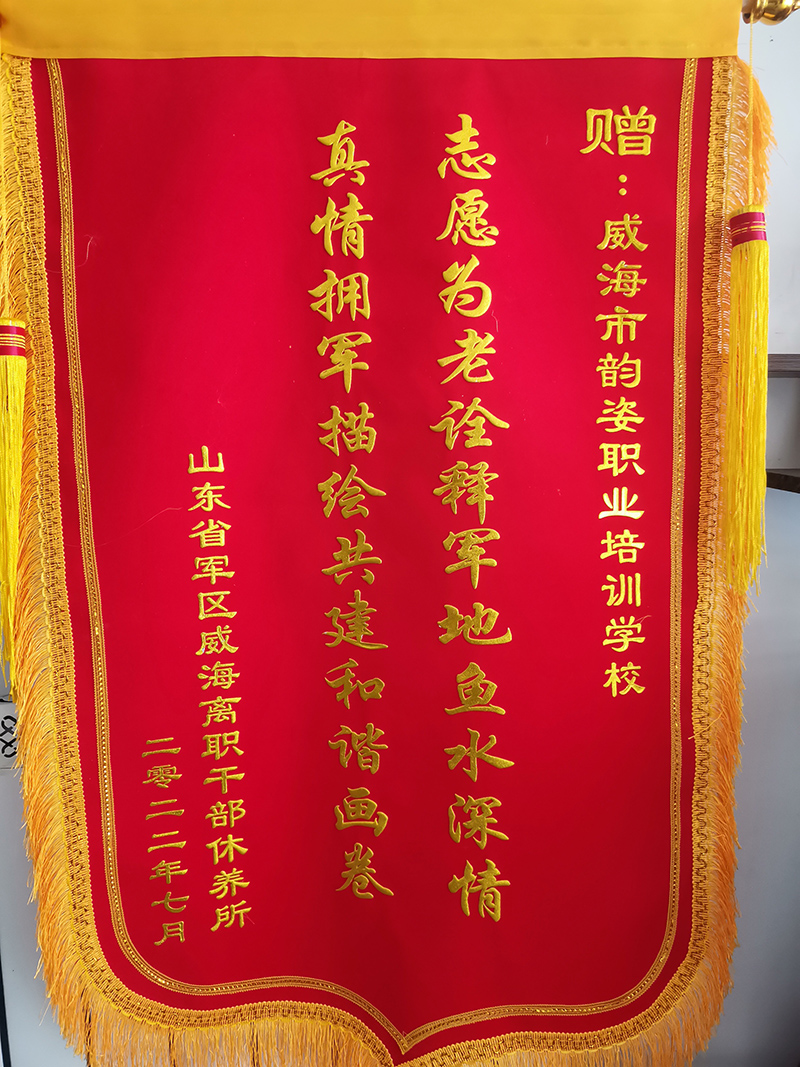 赠：威海市韵姿职业培训学校
志愿为老诠释军地鱼水深情
真情拥军描绘共建和谐画卷
山东省军区威海离职干部休养所
二零二二年七月